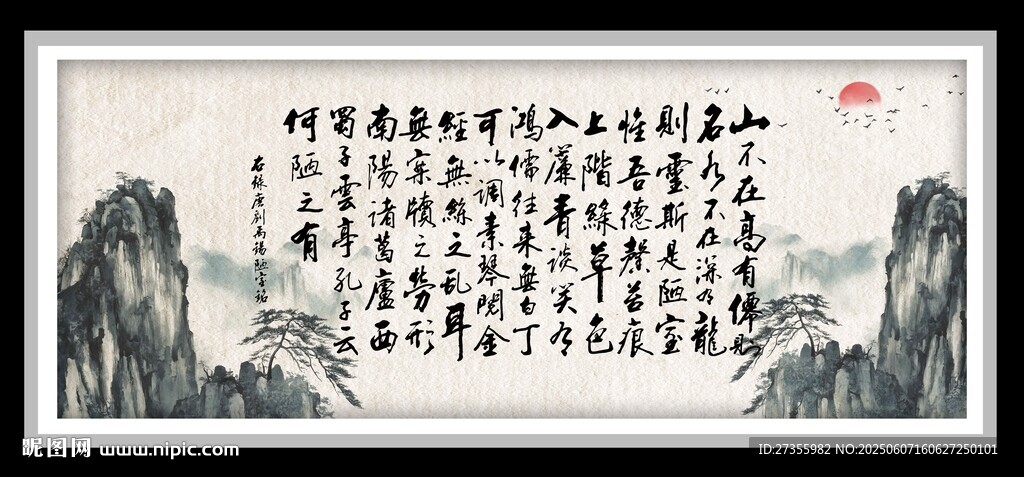 山不在高有僊則
名水不在深有龍
則靈斯是陋室
惟吾德馨苔痕
上階綠草色
入簾青談笑有
鴻儒往來無白丁
可以調素琴閱金
經無絲之亂耳
無案牘之勞形
南陽諸葛廬西
蜀子雲亭孔子云
何陋之有
右錄唐劉禹錫陋室銘
昵图网 www.nipic.com
ID:27355982 NO:20250607160627250101